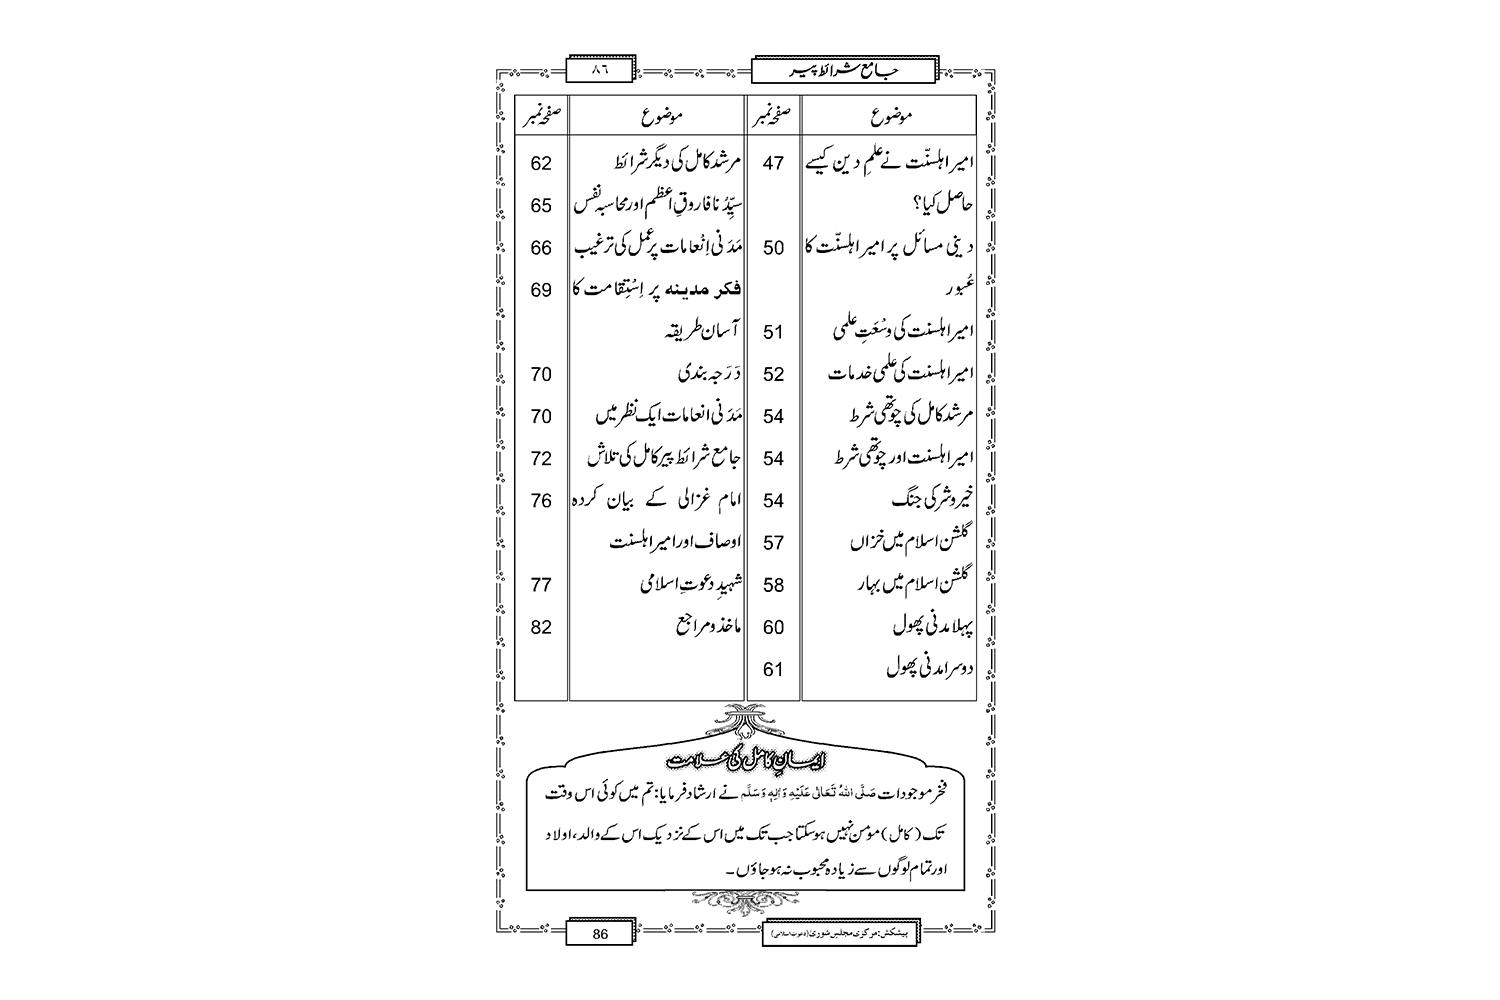 جامع شرائط پیر
٨٦
موضوع
صفحہ نمبر
موضوع
صفحہ نمبر
امیر اہلسنّت نے علمِ دین کیسے 47
حاصل کیا؟
دینی مسائل پر امیر اہلسنّت کا 50
عُبور
امیر اہلسنت کی وسْعَتِ علمی 51
امیر اہلسنت کی علمی خدمات 52
مرشد کامل کی چوتھی شرط 54
امیر اہلسنت اور چوتھی شرط 54
خیر و شر کی جنگ 54
گلشن اسلام میں خزاں 57
گلشن اسلام میں بہار 58
پہلا مدنی پھول 60
دوسرا مدنی پھول 61
مرشد کامل کی دیگر شرائط 62
سیِّدُنا فاروقِ اعظم اور محاسبہ نفس 65
مَدَنی اِنْعامات پر عمل کی ترغیب 66
فکر مدینہ پر اِسْتِقامت کا 69
آسان طریقہ
دَرَجہ بندی 70
مَدَنی انعامات ایک نظر میں 70
جامع شرائط پیر کامل کی تلاش 72
امام غزالی کے بیان کردہ 76
اوصاف اور امیر اہلسنت
شہیدِ دعوتِ اسلامی 77
ماخذ و مراجع 82
ایمانِ کامل کی علامت
فخر موجودات صَلَّی اللہُ تَعَالٰی عَلَیْہِ وَاٰلِہٖ وَسَلَّم نے ارشاد فرمایا: تم میں کوئی اس وقت
تک (کامل) مؤمن نہیں ہوسکتا جب تک میں اس کے نزدیک اس کے والد، اولاد
اور تمام لوگوں سے زیادہ محبوب نہ ہو جاؤں۔
پیشکش: مرکزی مجلس شوریٰ (دعوت اسلامی)
86